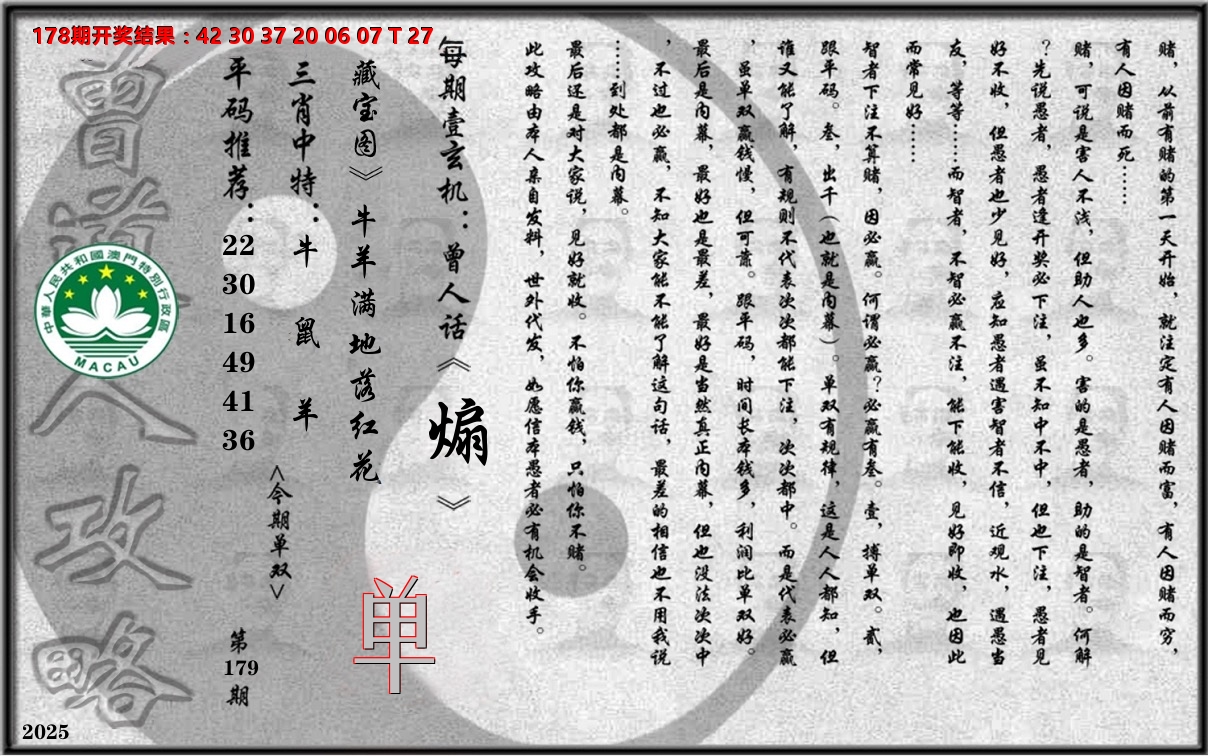 178期开奖结果：42 30 37 20 06 07 T 27
赌，从前有赌的第一天开始，就注定有人因赌而富，有人因赌而穷，
有人因赌而死……
赌，可说是害人不浅，但助人也多。害的是愚者，助的是智者。何解
？先说愚者，愚者逢开奖必下注，虽不知中不中，但也下注，愚者见
好不收，但愚者也少见好，应知愚者遇害智者不信，近观水，遇愚当
友，等等……而智者，不智必赢不注，能下能收，见好即收，也因此
而常见好……
智者下注不算赌，因必赢。何谓必赢？必赢有叁。壹，搏单双。贰，
跟平码。叁，出千（也就是内幕）。单双有规律，这是人人都知，但
谁又能了解，有规则不代表次次都能下注，次次都中。而是代表必赢
，虽单双赢钱慢，但可靠。跟平码，时间长本钱多，利润比单双好。
最后是内幕，最好也是最差，最好是当然真正内幕，但也没法次次中
，不过也必赢，不知大家能不能了解这句话，最差的相信也不用我说
……到处都是内幕。
最后还是对大家说，见好就收。不怕你赢钱，只怕你不赌。
此攻略由本人亲自发料，世外代发，如愿信本愚者必有机会收手。
每期壹玄机：曾人话《煽》
藏宝图》牛羊满地落红花
三肖中特：牛 鼠 羊
平码推荐：22 30 16 49 41 36
<今期单双>
单
第179期
曾道人攻略
中華人民共和國澳門特別行政區
MACAU
2025